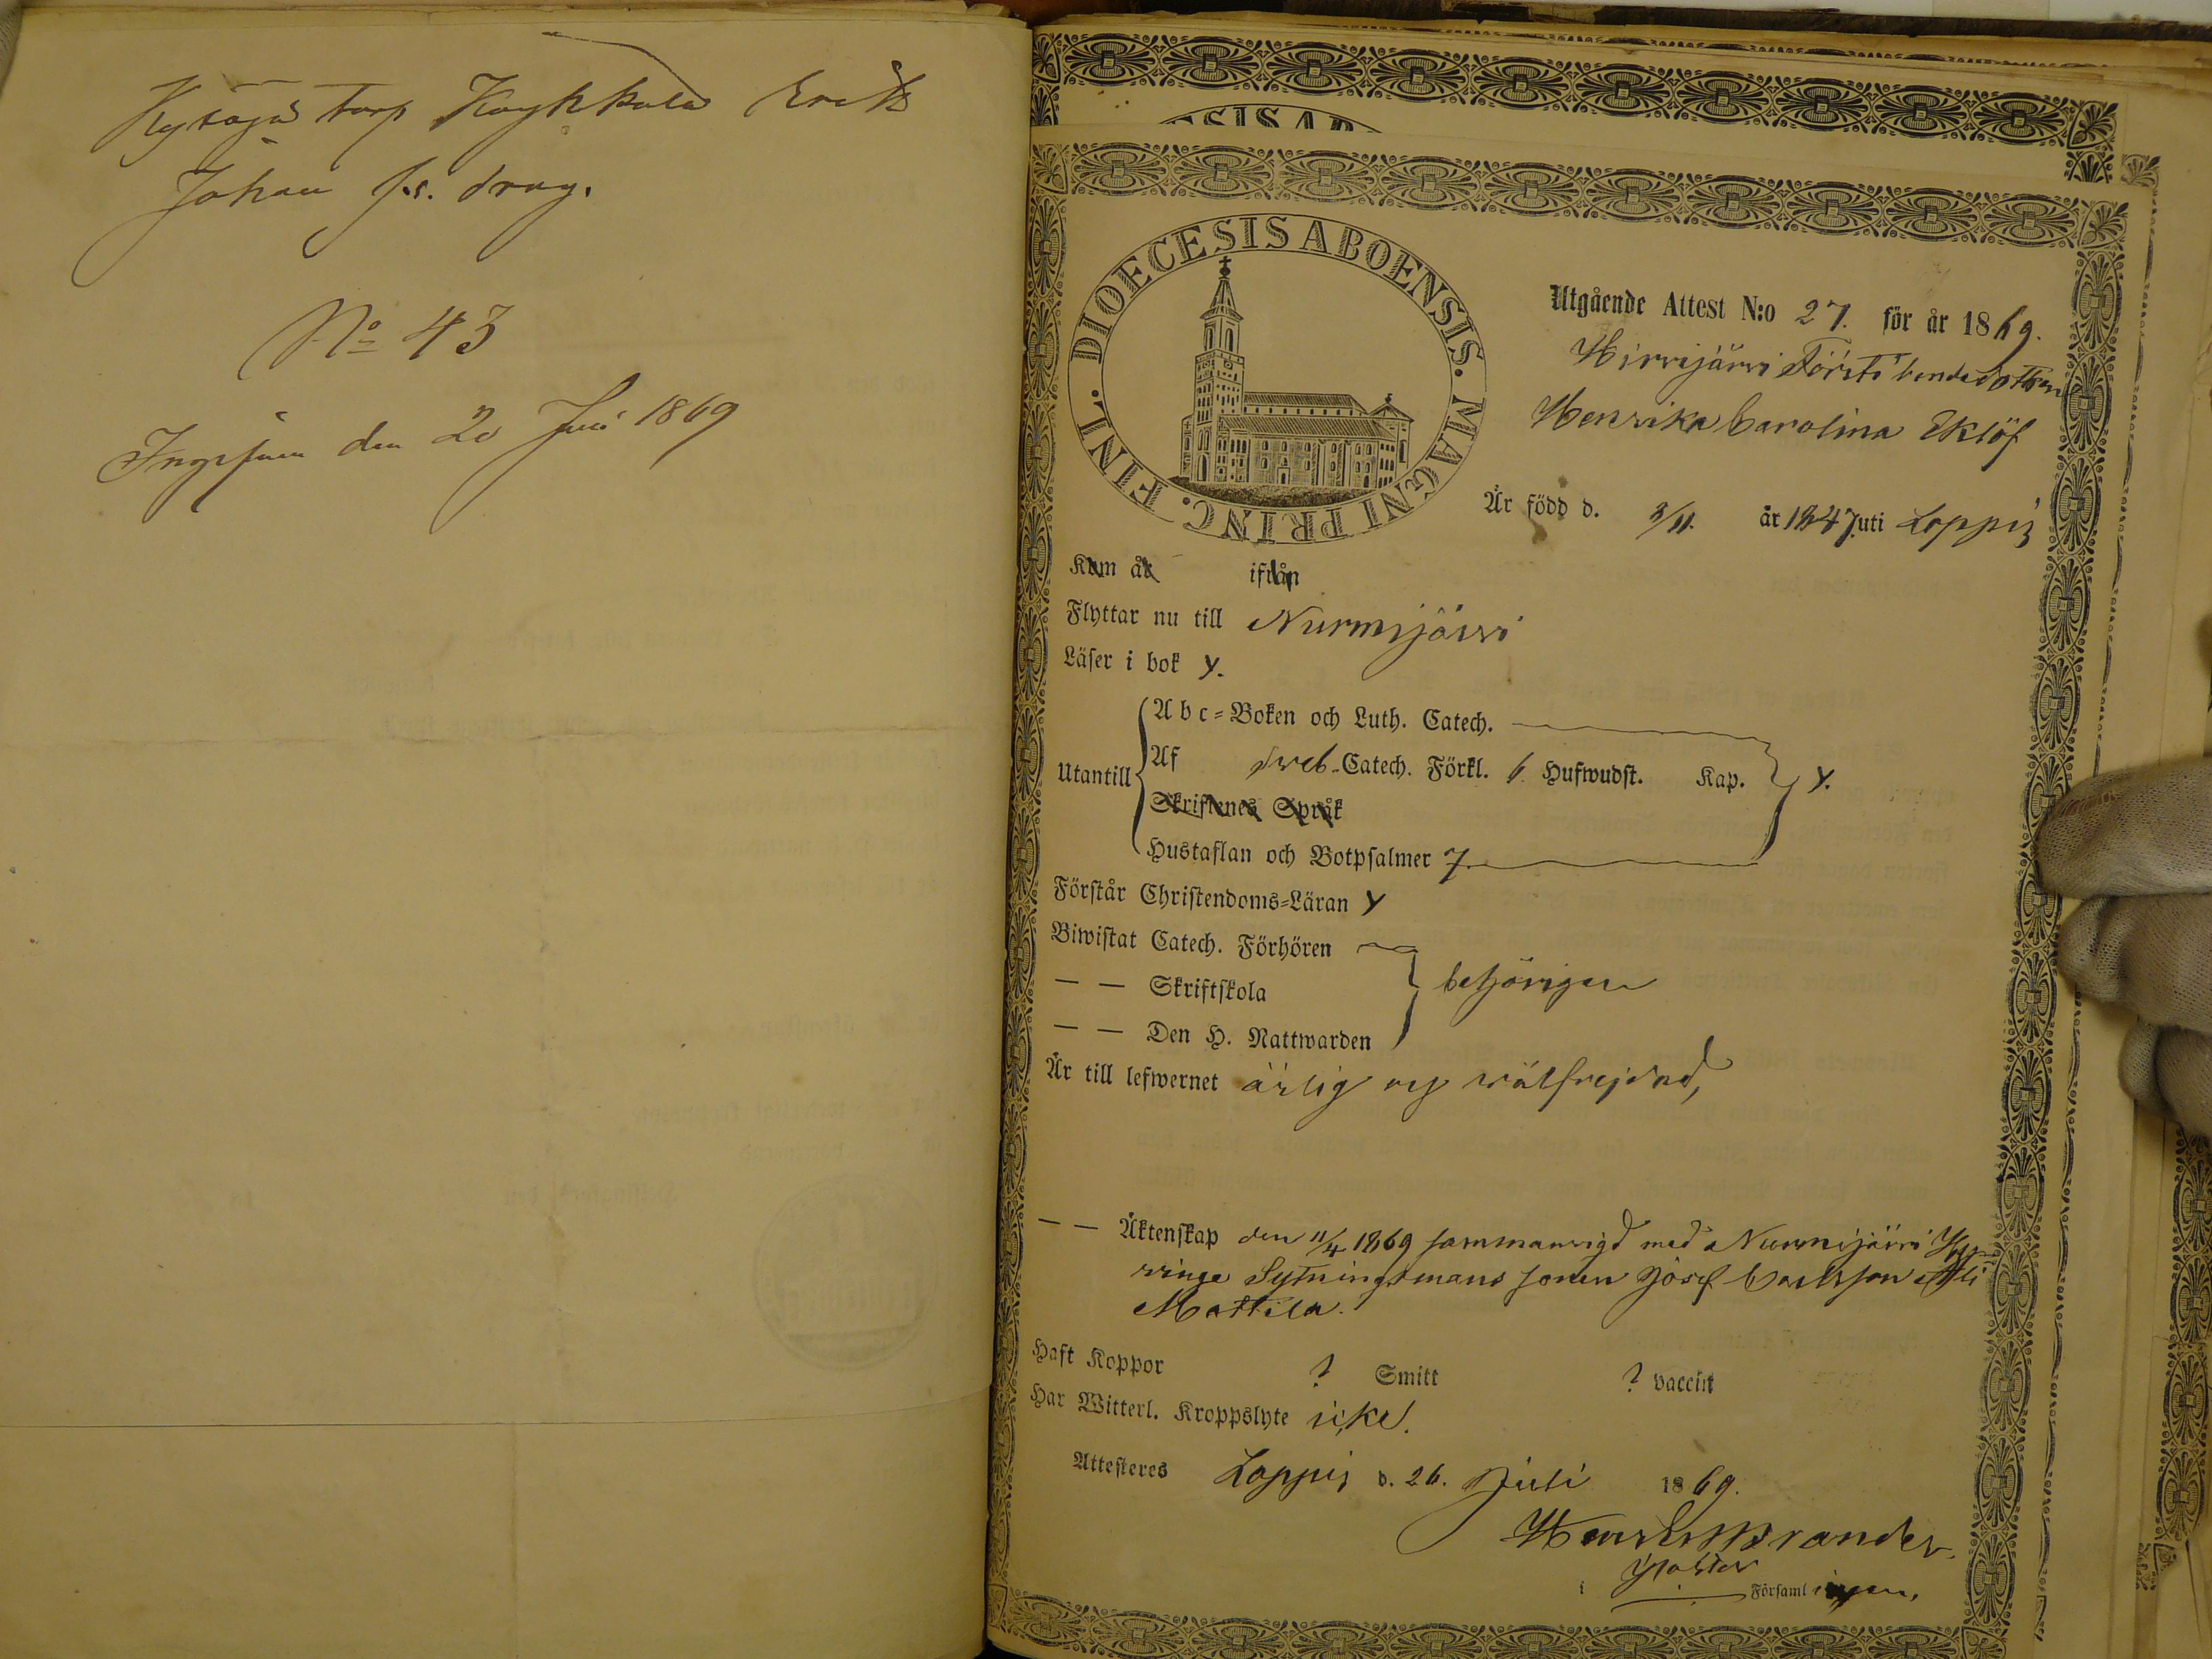 Kytäjä torp Koykkula Erik
Johan s.s. drag.
No 43
Ingifven den 20 Juni 1869
DIOECESIS ABOENSIS. MAGNI PRINC. FINL.
Utgående Attest N:o 27. för år 1869.
Hirvijärvi Försti bondedottren
Henrika Carolina Eklöf
Är född d. 3/11. år 1847. uti Loppis
Kom år ifrån
Flyttar nu till Nurmijärvi
Läser i bok y.
Abc-Boken och Luth. Catech.
Utantill Af Sveb. Catech. Förkl. 6 Hufwudst. Kap. y.
Skriftenes Språk
Hustaflan och Botpsalmer 7.
Förstår Christendoms-Läran y
Biwistat Catech. Förhören
— — Skriftskola behörigen
— — Den H. Nattwarden
Är till lefwernet ärlig och välfrejdad,
— — Äktenskap den 11/4 1869 sammanvigd med Nurmijärvi Hy-
vinge Sytningsmans sonen Josef Carlsson
Mattila.
Haft Koppor ? Smitt ? vaccin
Har Witterl. Kroppslyte icke.
Attesteres Loppis d. 26. Juli 1869.
Brander.
Pastor
i Församlingen.